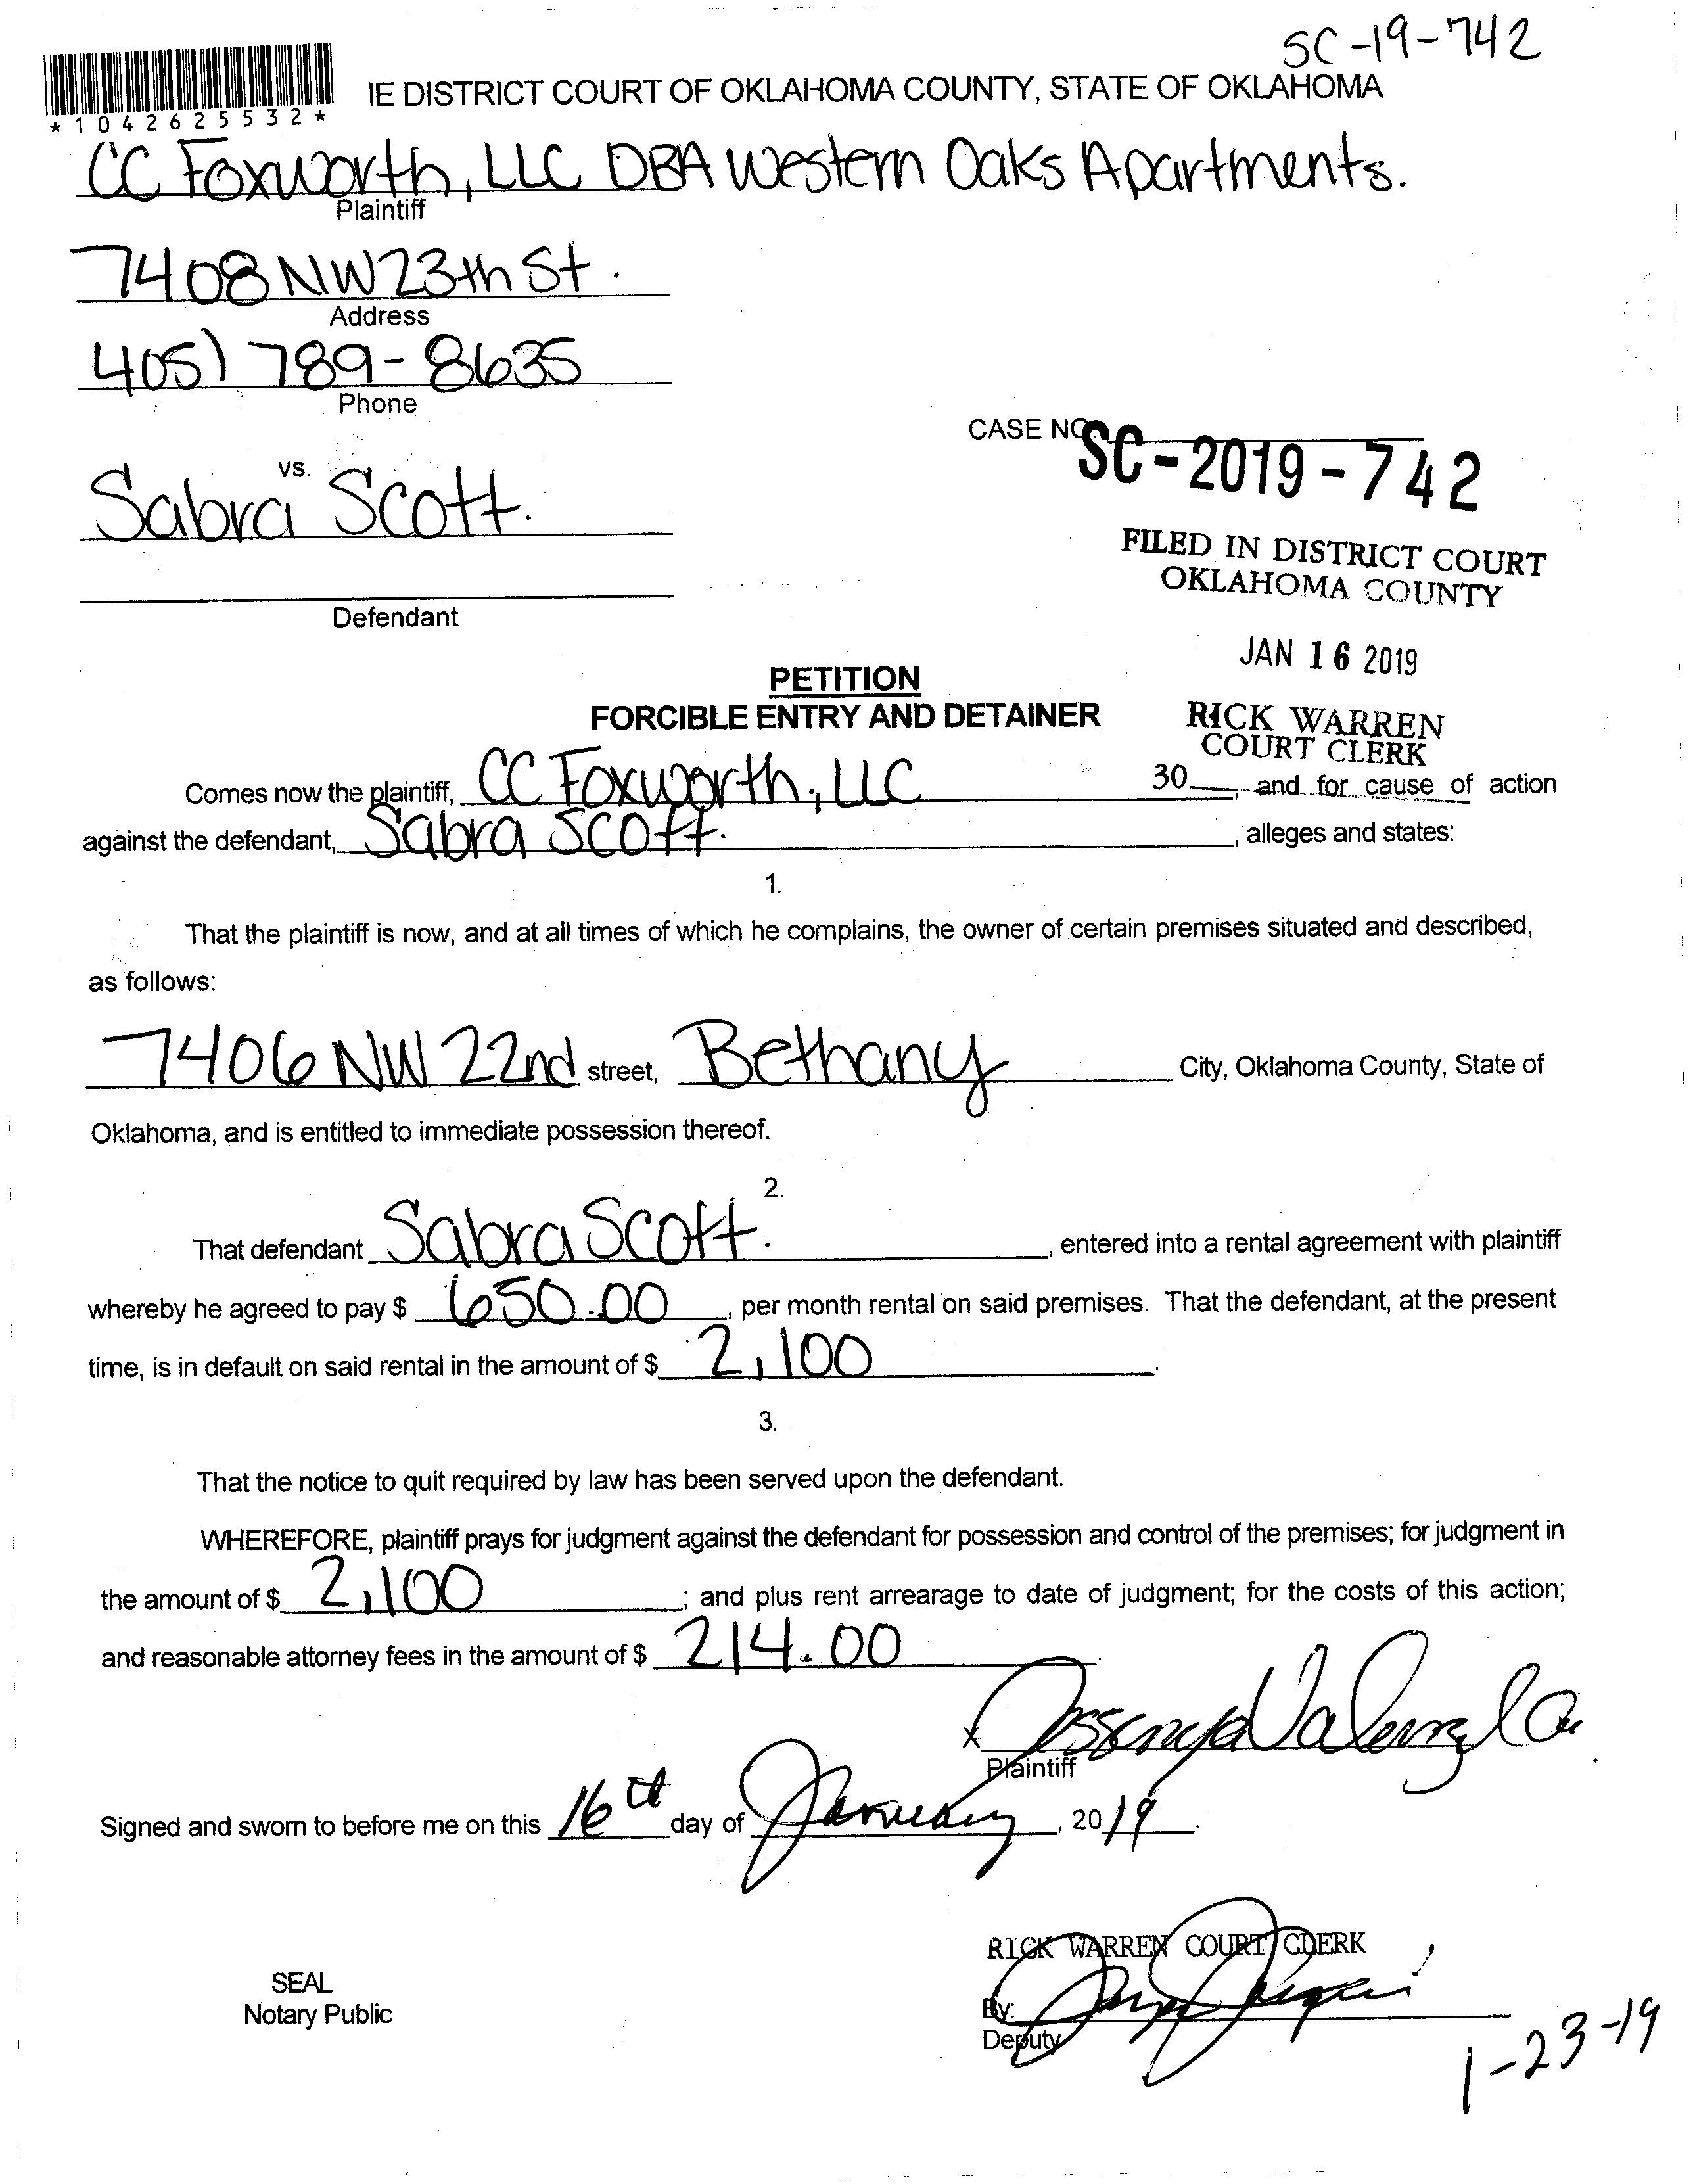 SC-19-742
*1042625532*
IE DISTRICT COURT OF OKLAHOMA COUNTY, STATE OF OKLAHOMA
CC Foxworth, LLC DBA Western Oaks Apartments.
Plaintiff
7408 NW 23th St.
Address
405) 789-8635
Phone
CASE NO.
SC-2019-742
vs.
Sabra Scott.
FILED IN DISTRICT COURT
OKLAHOMA COUNTY
Defendant
JAN 16 2019
PETITION
FORCIBLE ENTRY AND DETAINER
RICK WARREN
COURT CLERK
Comes now the plaintiff, CC Foxworth, LLC 30 , and for cause of action
against the defendant, Sabra Scott. , alleges and states:
1.
That the plaintiff is now, and at all times of which he complains, the owner of certain premises situated and described,
as follows:
7406 NW 22nd street, Bethany City, Oklahoma County, State of
Oklahoma, and is entitled to immediate possession thereof.
2.
That defendant Sabra Scott. , entered into a rental agreement with plaintiff
whereby he agreed to pay $ 650.00 , per month rental on said premises. That the defendant, at the present
time, is in default on said rental in the amount of $ 2,100 .
3.
That the notice to quit required by law has been served upon the defendant.
WHEREFORE, plaintiff prays for judgment against the defendant for possession and control of the premises; for judgment in
the amount of $ 2,100 ; and plus rent arrearage to date of judgment; for the costs of this action;
and reasonable attorney fees in the amount of $ 214.00 .
X
Plaintiff
Signed and sworn to before me on this 16th day of January , 2019 .
RICK WARREN COURT CLERK
SEAL
Notary Public
By:
Deputy
1-23-19